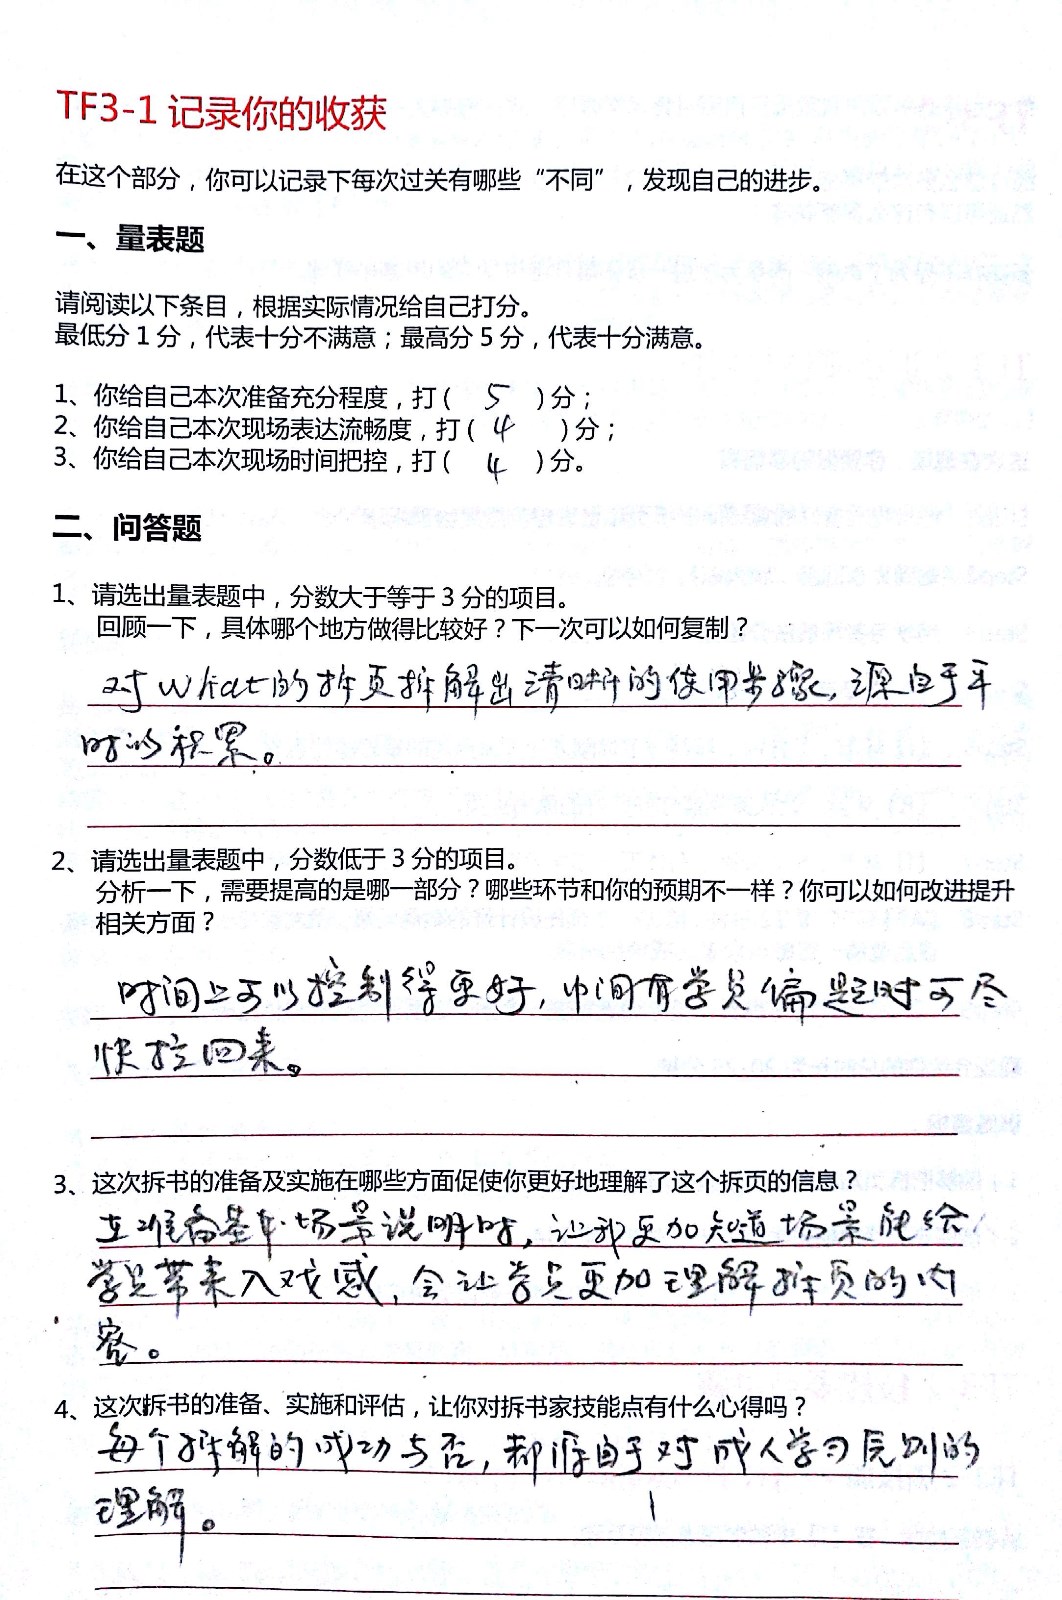 TF3-1 记录你的收获
在这个部分，你可以记录下每次过关有哪些“不同”，发现自己的进步。
一、量表题
请阅读以下条目，根据实际情况给自己打分。
最低分 1 分，代表十分不满意；最高分 5 分，代表十分满意。
1、你给自己本次准备充分程度，打（ 5 ）分；
2、你给自己本次现场表达流畅度，打（ 4 ）分；
3、你给自己本次现场时间把控，打（ 4 ）分。
二、问答题
1、请选出量表题中，分数大于等于 3 分的项目。
回顾一下，具体哪个地方做得比较好？下一次可以如何复制？
对 What的拆页拆解出清晰的使用步骤，源自于平
时的积累。
2、请选出量表题中，分数低于 3 分的项目。
分析一下，需要提高的是哪一部分？哪些环节和你的预期不一样？你可以如何改进提升
相关方面？
时间上可以控制得更好，中间有学员偏题时可尽
快控回来。
3、这次拆书的准备及实施在哪些方面促使你更好地理解了这个拆页的信息？
在准备基本场景说明时，让我更加知道场景能给
学员带来入戏感，会让学员更加理解拆页的内
容。
4、这次拆书的准备、实施和评估，让你对拆书家技能点有什么心得吗？
每个拆解的成功与否，都源自于对成人学习原则的
理解。